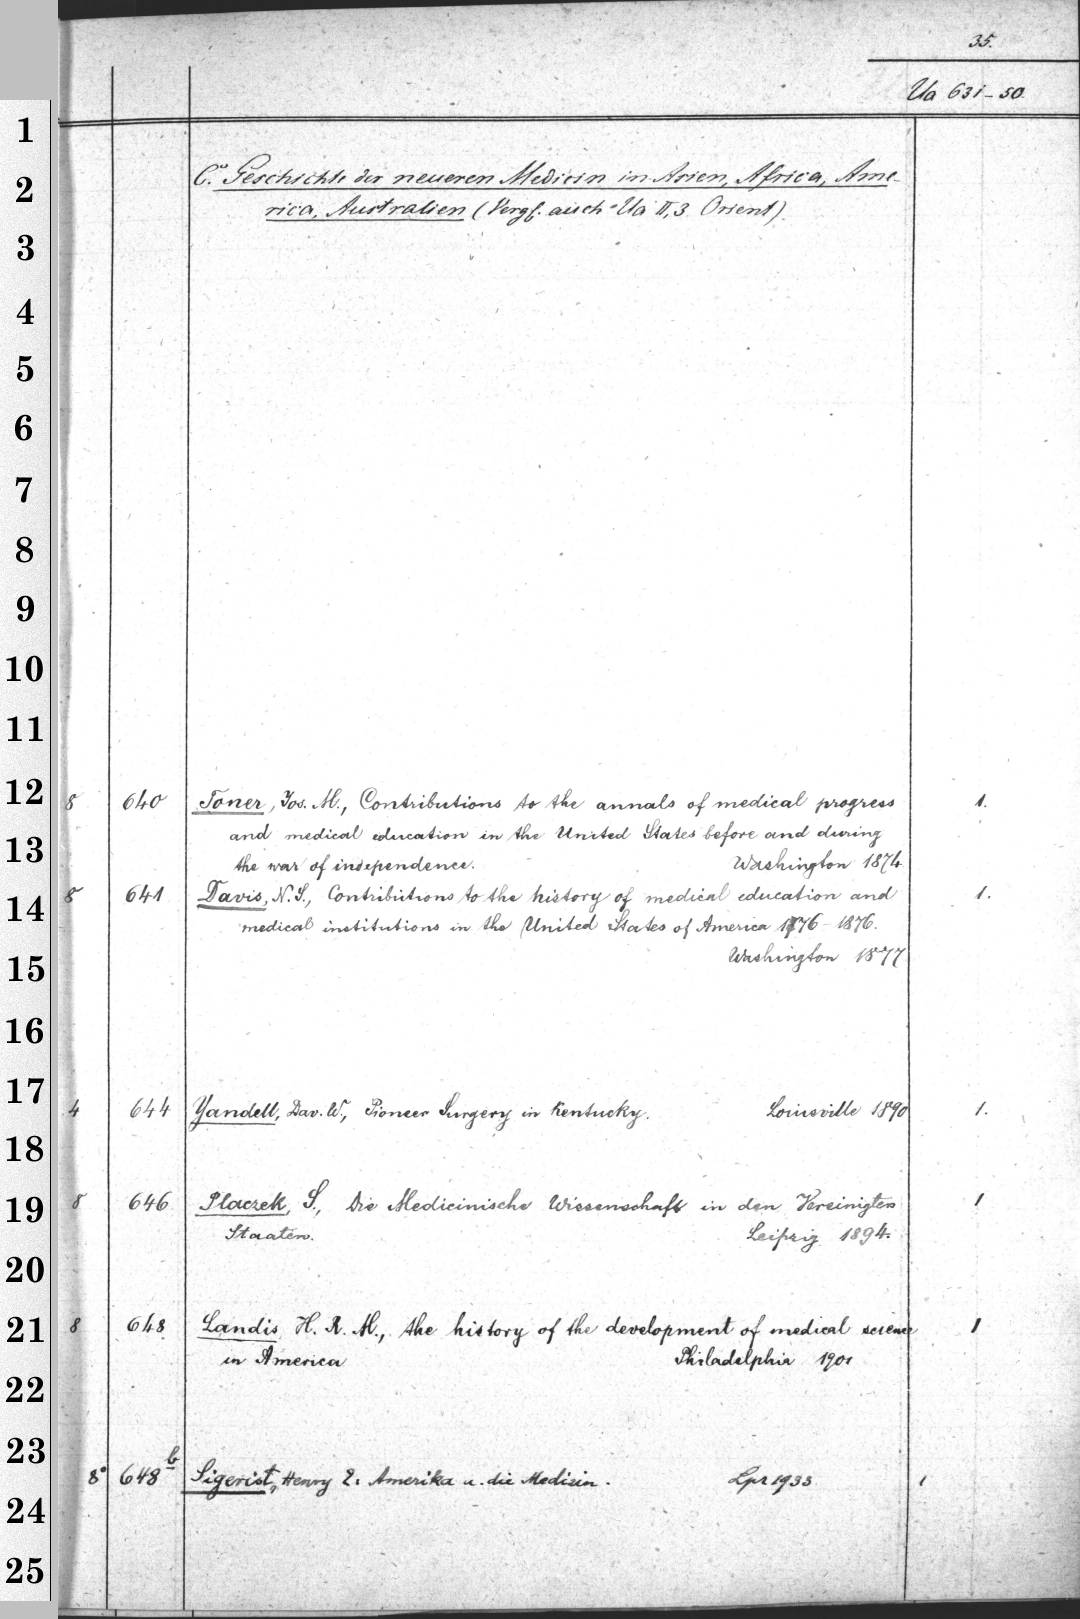 35.
Ua 631-50
C. Geschichte der neueren Medicin in Asien, Africa, Ame-
rica, Australien (Vergl. auch Ua II,3 Orient).
8 640 Toner, Jos. M., Contributions to the annals of medical progress 1.
and medical education in the United States before and during
the war of independence. Washington 1874
8 641 Davis, N. S., Contributions to the history of medical education and 1.
medical institutions in the United States of America 1776-1876.
Washington 1877
4 644 Yandell, Dav. W., Pioneer Surgery in Kentucky. Louisville 1890 1.
8 646 Placzek, S., Die Medicinische Wissenschaft in den Vereinigten 1
Staaten. Leipzig 1894.
8 648 Landis, H. R. M., the history of the development of medical science 1
in America Philadelphia 1901
8° 648 b Sigerist, Henry E: Amerika u. die Medizin. Lpz 1933 1
1
2
3
4
5
6
7
8
9
10
11
12
13
14
15
16
17
18
19
20
21
22
23
24
25